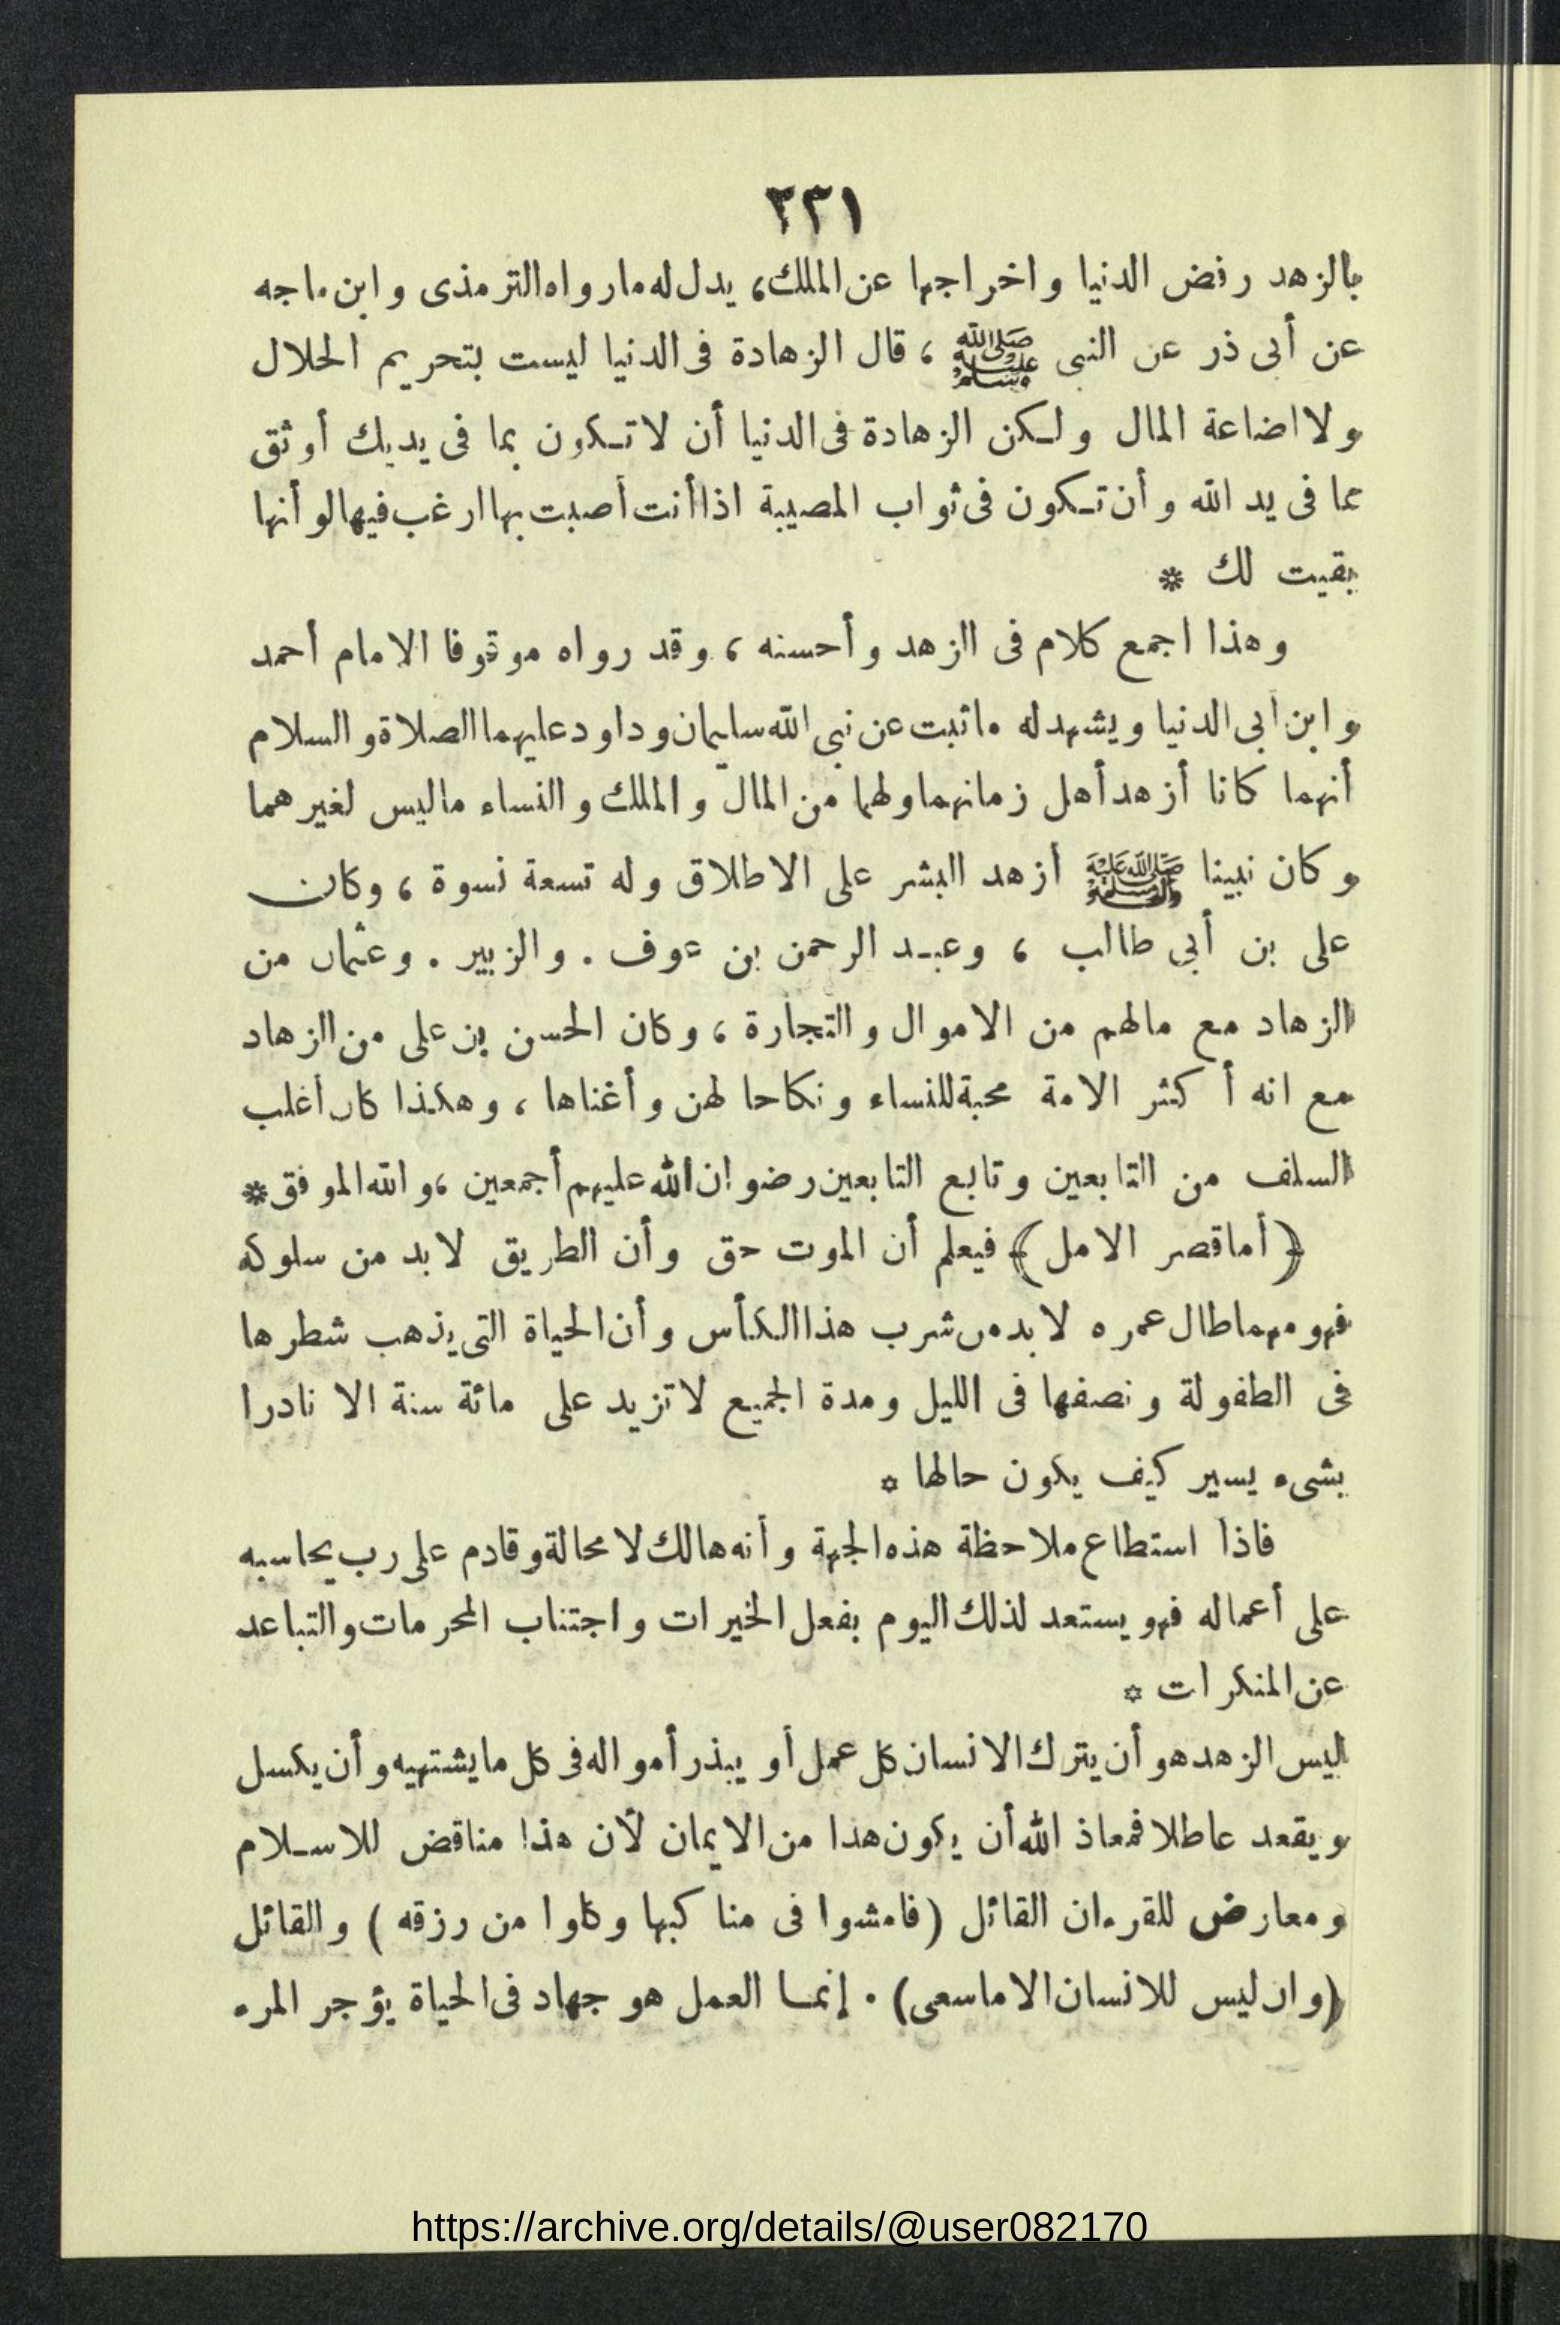 ٢٣١
بالزهد رفض الدنيا واخراجها عن الملك، يدل له ما رواه الترمذى وابن ماجه
عن أبى ذر عن النبى ﷺ ، قال الزهادة فى الدنيا ليست بتحريم الحلال
ولا اضاعة المال ولكن الزهادة فى الدنيا أن لا تكون بما فى يديك أوثق
مما فى يد الله وأن تكون فى ثواب المصيبة اذا أنت أصبت بها ارغب فيها لو أنها
بقيت لك *
وهذا اجمع كلام فى الزهد وأحسنه ، وقد رواه موقوفا الامام أحمد
وابن أبى الدنيا ويشهد له ماثبت عن نبى الله سليمان وداود عليهما الصلاة والسلام
أنهما كانا أزهد أهل زمانهما ولهما من المال والملك والنساء ماليس لغيرهما
وكان نبينا ﷺ أزهد البشر على الاطلاق وله تسعة نسوة ، وكان
على بن أبي طالب ، وعبد الرحمن بن عوف . والزبير . وعثمان من
الزهاد مع مالهم من الاموال والتجارة ، وكان الحسن بن على من الزهاد
مع انه أكثر الامة محبة للنساء ونكاحا لهن وأغناها ، وهكذا كان أغلب
السلف من التابعين وتابع التابعين رضوان الله عليهم أجمعين ، والله الموفق *
﴿أما قصر الامل﴾ فيعلم أن الموت حق وأن الطريق لا بد من سلوكه
فهو مهما طال عمره لا بد من شرب هذا الكأس وأن الحياة التى يذهب شطرها
فى الطفولة ونصفها فى الليل ومدة الجميع لا تزيد على مائة سنة الا نادرا
بشىء يسير كيف يكون حالها *
فاذا استطاع ملاحظة هذه الجهة وأنه هالك لا محالة وقادم على رب يحاسبه
على أعماله فهو يستعد لذلك اليوم بفعل الخيرات واجتناب المحرمات والتباعد
عن المنكرات *
ليس الزهد هو أن يترك الانسان كل عمل أو يبذر أمواله فى كل ما يشتهيه وأن يكسل
ويقعد عاطلا فمعاذ الله أن يكون هذا من الايمان لأن هذا مناقض للاسلام
ومعارض للقرءان القائل (فامشوا فى مناكبها وكلوا من رزقه ) والقائل
(وان ليس للانسان الا ماسعى) . إنما العمل هو جهاد فى الحياة يؤجر المرء
https://archive.org/details/@user082170